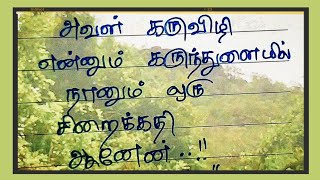 அவள் கருவிழி
என்னும் கருந்துளையில்
நானும் ஒரு
சிறைக்கதி
ஆனேன்..!!
"